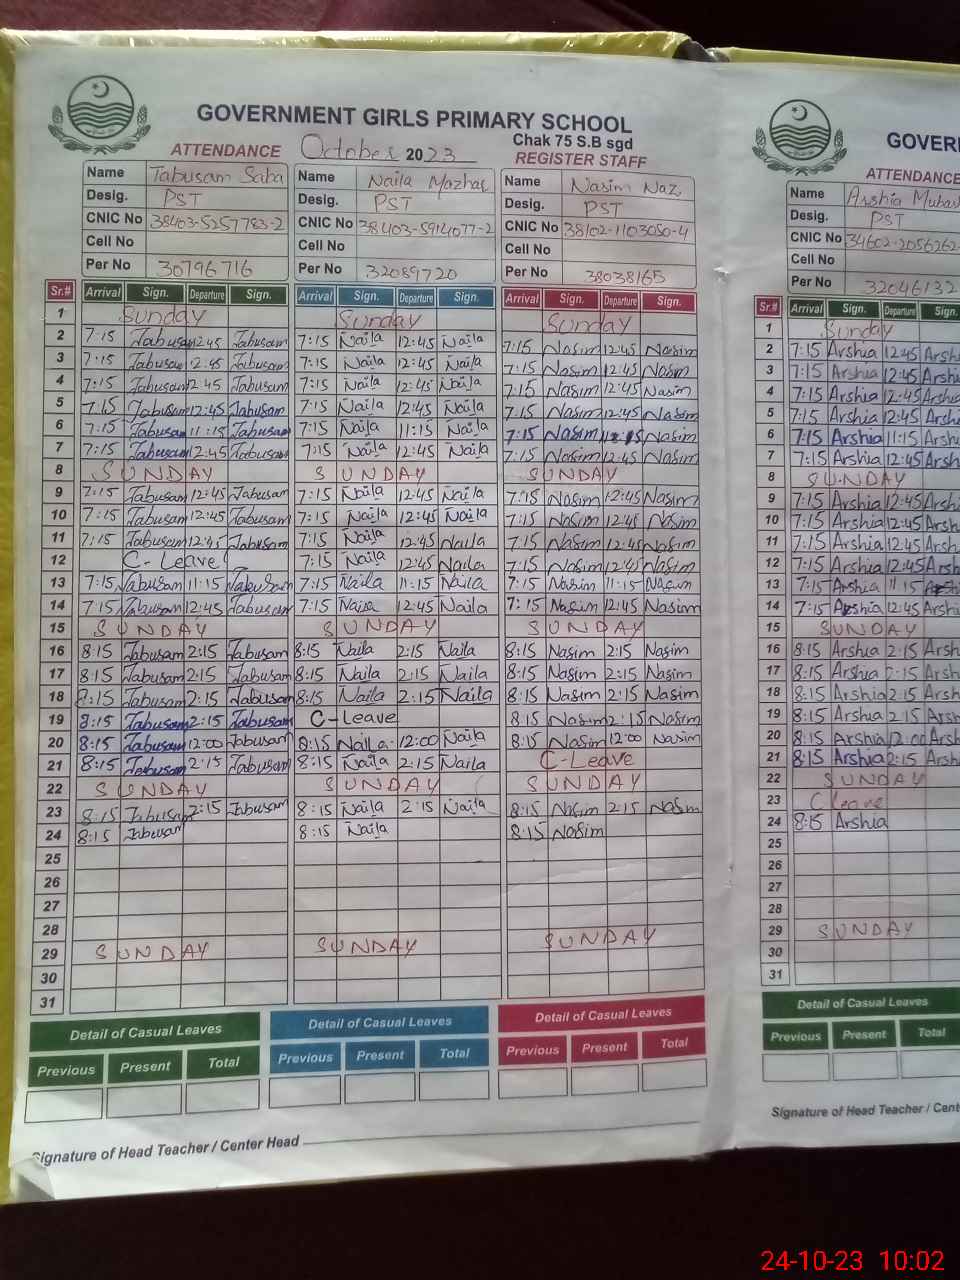 GOVERNMENT GIRLS PRIMARY SCHOOL
Chak 75 S.B sgd
ATTENDANCE October 2023 REGISTER STAFF
Name Tabusam Saba Name Naila Mazhar Name Nasim Naz
Desig. PST Desig. PST Desig. PST
CNIC No 38403-5257783-2 CNIC No 38403-5914077-2 CNIC No 38102-1103050-4
Cell No Cell No Cell No
Per No 30796716 Per No 32089720 Per No 38038165
Sr.# Arrival Sign. Departure Sign. Arrival Sign. Departure Sign. Arrival Sign. Departure Sign.
1 Sunday Sunday Sunday
2 7:15 Tabusam 12:45 Tabusam 7:15 Naila 12:45 Naila 7:15 Nasim 12:45 Nasim
3 7:15 Tabusam 12:45 Tabusam 7:15 Naila 12:45 Naila 7:15 Nasim 12:45 Nasim
4 7:15 Tabusam 12:45 Tabusam 7:15 Naila 12:45 Naila 7:15 Nasim 12:45 Nasim
5 7:15 Tabusam 12:45 Tabusam 7:15 Naila 12:45 Naila 7:15 Nasim 12:45 Nasim
6 7:15 Tabusam 11:15 Tabusam 7:15 Naila 11:15 Naila 7:15 Nasim 11:15 Nasim
7 7:15 Tabusam 12:45 Tabusam 7:15 Naila 12:45 Naila 7:15 Nasim 12:45 Nasim
8 SUNDAY SUNDAY SUNDAY
9 7:15 Tabusam 12:45 Tabusam 7:15 Naila 12:45 Naila 7:15 Nasim 12:45 Nasim
10 7:15 Tabusam 12:45 Tabusam 7:15 Naila 12:45 Naila 7:15 Nasim 12:45 Nasim
11 7:15 Tabusam 12:45 Tabusam 7:15 Naila 12:45 Naila 7:15 Nasim 12:45 Nasim
12 C-Leave 7:15 Naila 12:45 Naila 7:15 Nasim 12:45 Nasim
13 7:15 Tabusam 11:15 Tabusam 7:15 Naila 11:15 Naila 7:15 Nasim 11:15 Nasim
14 7:15 Tabusam 12:45 Tabusam 7:15 Naila 12:45 Naila 7:15 Nasim 12:45 Nasim
15 SUNDAY SUNDAY SUNDAY
16 8:15 Tabusam 2:15 Tabusam 8:15 Naila 2:15 Naila 8:15 Nasim 2:15 Nasim
17 8:15 Tabusam 2:15 Tabusam 8:15 Naila 2:15 Naila 8:15 Nasim 2:15 Nasim
18 8:15 Tabusam 2:15 Tabusam 8:15 Naila 2:15 Naila 8:15 Nasim 2:15 Nasim
19 8:15 Tabusam 2:15 Tabusam C-Leave 8:15 Nasim 2:15 Nasim
20 8:15 Tabusam 12:00 Tabusam 8:15 Naila 12:00 Naila 8:15 Nasim 12:00 Nasim
21 8:15 Tabusam 2:15 Tabusam 8:15 Naila 2:15 Naila C-Leave
22 SUNDAY SUNDAY SUNDAY
23 8:15 Tabusam 2:15 Tabusam 8:15 Naila 2:15 Naila 8:15 Nasim 2:15 Nasim
24 8:15 Tabusam 8:15 Naila 8:15 Nasim
25
26
27
28
29 SUNDAY SUNDAY SUNDAY
30
31
Detail of Casual Leaves Detail of Casual Leaves Detail of Casual Leaves
Previous Present Total Previous Present Total Previous Present Total
Signature of Head Teacher / Center Head
ATTENDANCE
Name Arshia
Desig. PST
CNIC No 34602-2056262-
Cell No
Per No 32046132
Sr.# Arrival Sign. Departure Sign.
1 Sunday
2 7:15 Arshia 12:45
3 7:15 Arshia 12:45
4 7:15 Arshia 12:45
5 7:15 Arshia 12:45
6 7:15 Arshia 11:15
7 7:15 Arshia 12:45
8 SUNDAY
9 7:15 Arshia 12:45
10 7:15 Arshia 12:45
11 7:15 Arshia 12:45
12 7:15 Arshia 12:45
13 7:15 Arshia 11:15
14 7:15 Arshia 12:45
15 SUNDAY
16 8:15 Arshia 2:15
17 8:15 Arshia 2:15
18 8:15 Arshia 2:15
19 8:15 Arshia 2:15
20 8:15 Arshia 12:00
21 8:15 Arshia 2:15
22 SUNDAY
23 C leave
24 8:15 Arshia
25
26
27
28
29 SUNDAY
30
31
Detail of Casual Leaves
Previous Present Total
Signature of Head Teacher
24-10-23 10:02